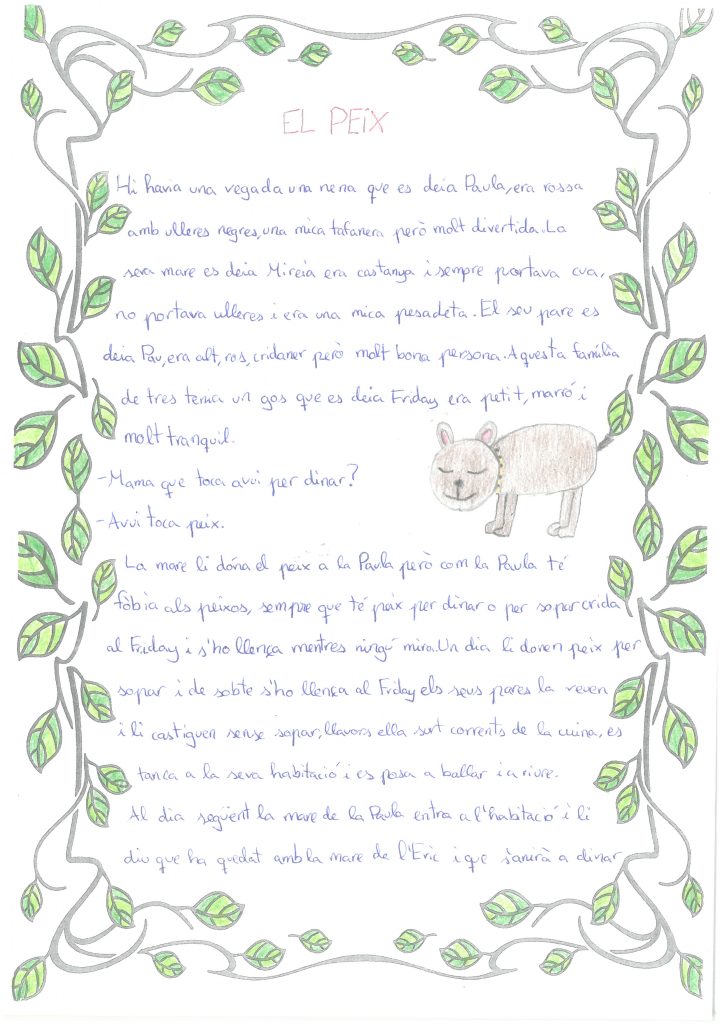 EL PEIX
Hi havia una vegada una nena que es deia Paula, era rossa
amb ulleres negres, una mica tafanera però molt divertida. La
seva mare es deia Mireia era castanya i sempre portava cua,
no portava ulleres i era una mica pesadeta. El seu pare es
deia Pau, era alt, ros, cridaner però molt bona persona. Aquesta família
de tres tenia un gos que es deia Friday era petit, marró i
molt tranquil.
-Mama que toca avui per dinar?
-Avui toca peix.
La mare li dóna el peix a la Paula però com la Paula té
fòbia als peixos, sempre que té peix per dinar o per sopar crida
al Friday i s'ho llença mentres ningú mira. Un dia li donen peix per
sopar i de sobte s'ho llença al Friday els seus pares la veuen
i li castiguen sense sopar, llavors ella surt corrents de la cuina, es
tanca a la seva habitació i es posa a ballar i a riure.
Al dia següent la mare de la Paula entra a l'habitació i li
diu que ha quedat amb la mare de l'Eric i que s'anirà a dinar